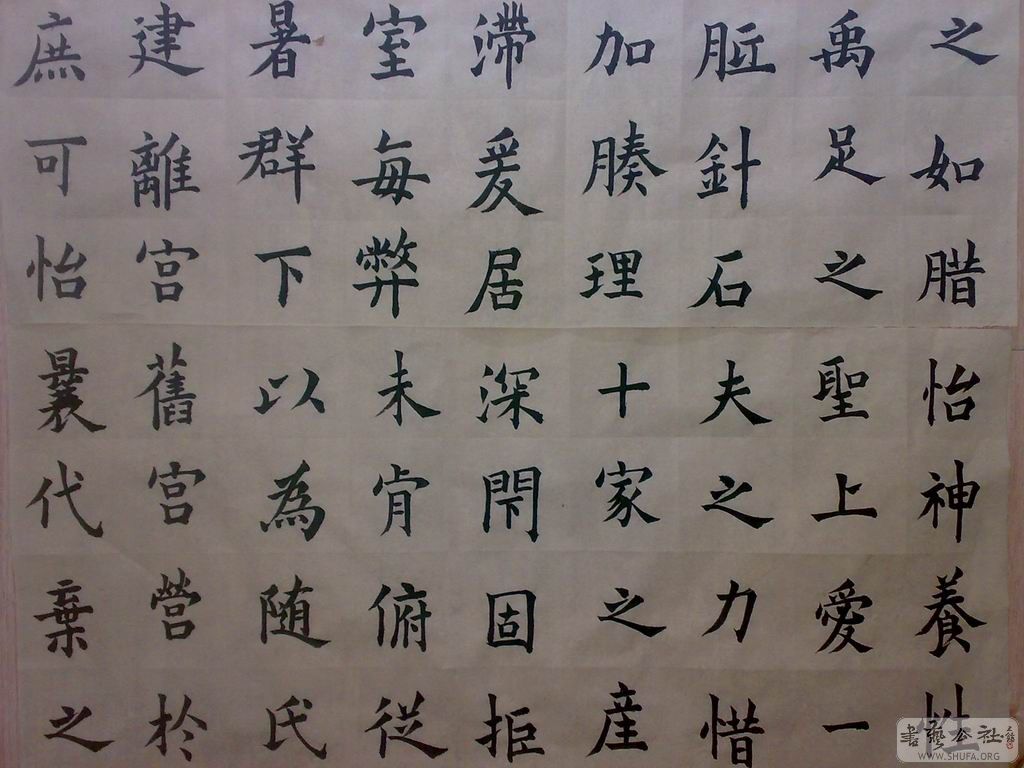 之如腊怡神養性
禹足之聖上愛一
胝針石夫之力惜
加腠理十家之産
滯爰居深閇固拒
室每弊未肯俯從
暑群下以為随氏
建離宫舊宫營於
庶可怡曩代棄之
書藝公社
WWW.SHUFA.ORG